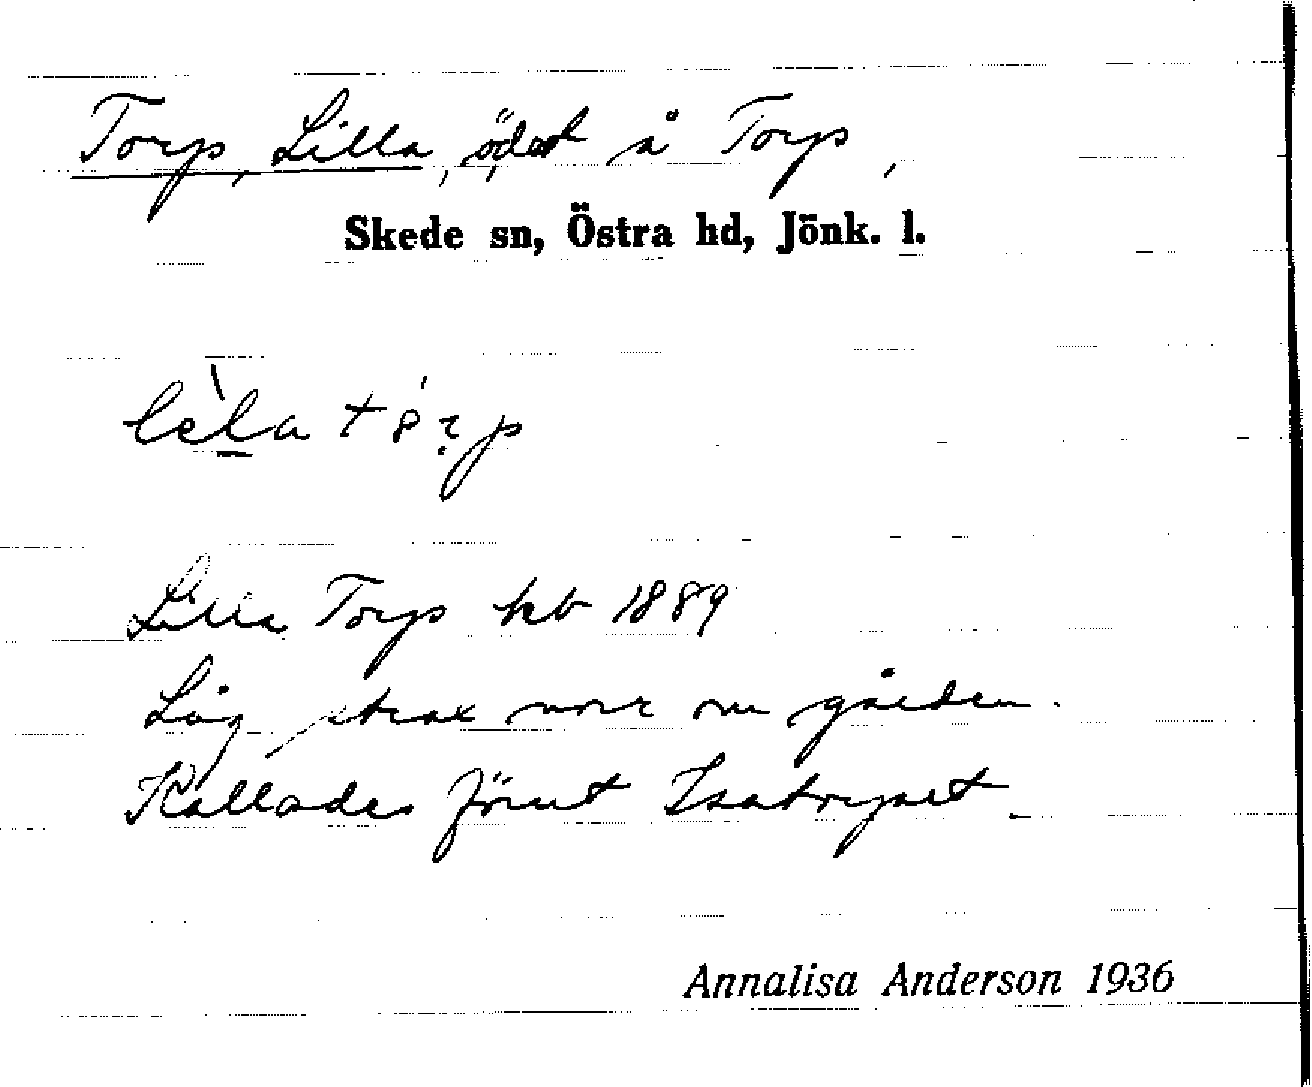 Torp, Lilla, ödet å Torp,
Skede sn, Östra hd, Jönk. l.
Lilla Torp hb 1889
Låg strax norr om gården.
Kallades förut
Annalisa Anderson 1936